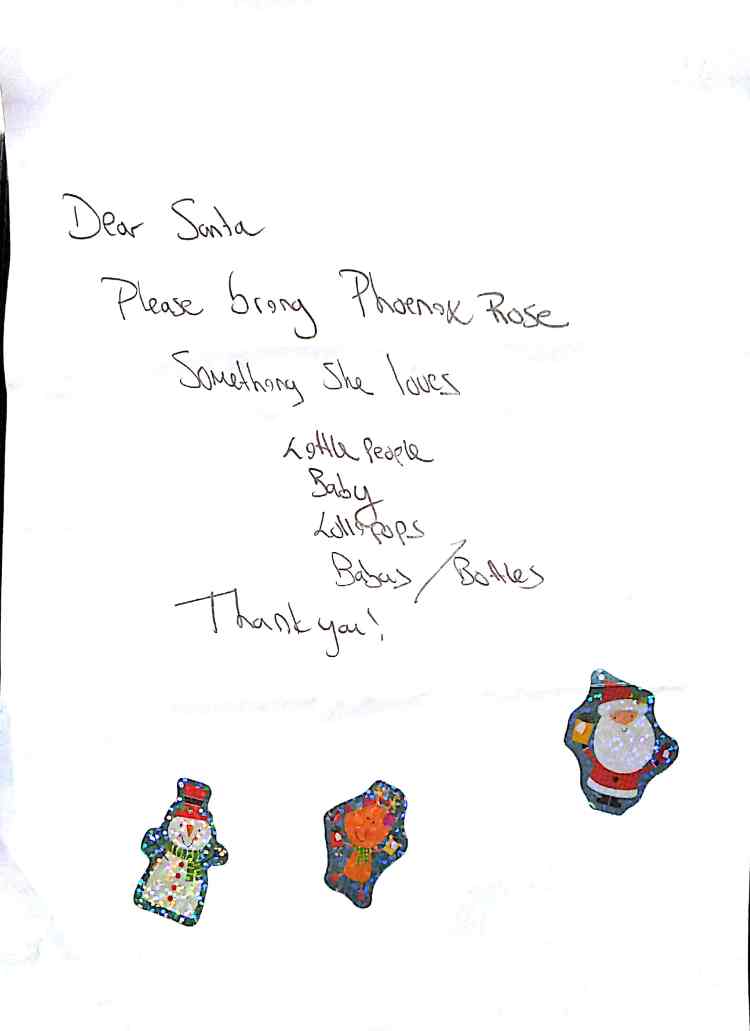 Dear Santa
Please bring Phoenix Rose
Something She loves
Little People
Baby
Lollipops
Babas / Bottles
Thank you!